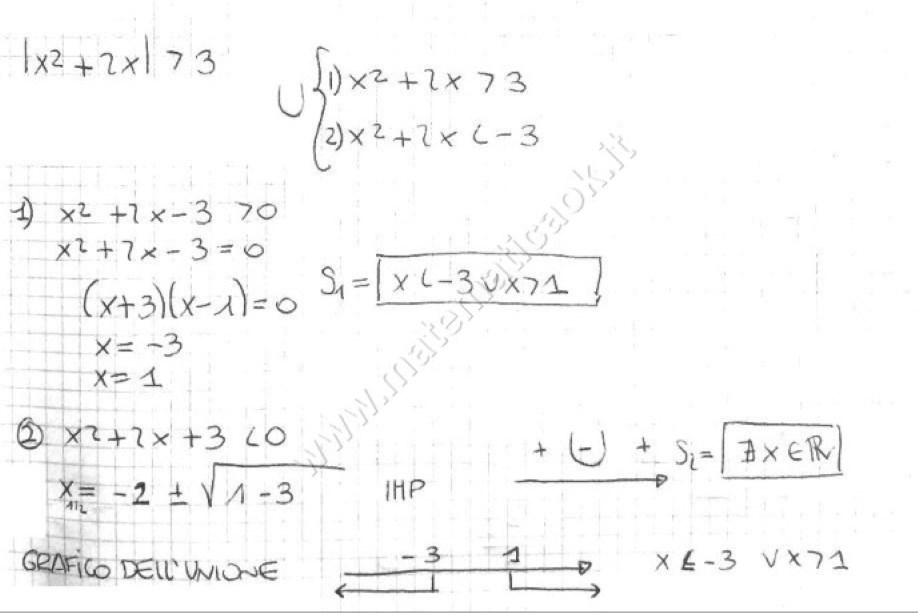 |x² + 2x| > 3
∪ { 1) x² + 2x > 3
2) x² + 2x < -3
1) x² + 2x - 3 > 0
x² + 2x - 3 = 0
(x+3)(x-1) = 0
x = -3
x = 1
S₁ = x < -3 ∪ x > 1
② x² + 2x + 3 < 0
x₁/₂ = -2 ± √1 - 3
IMP
+ (-) +
S₂ = ∄ x ∈ ℝ
GRAFICO DELL'UNIONE
-3 1
x < -3 ∨ x > 1
www.matematicaok.it